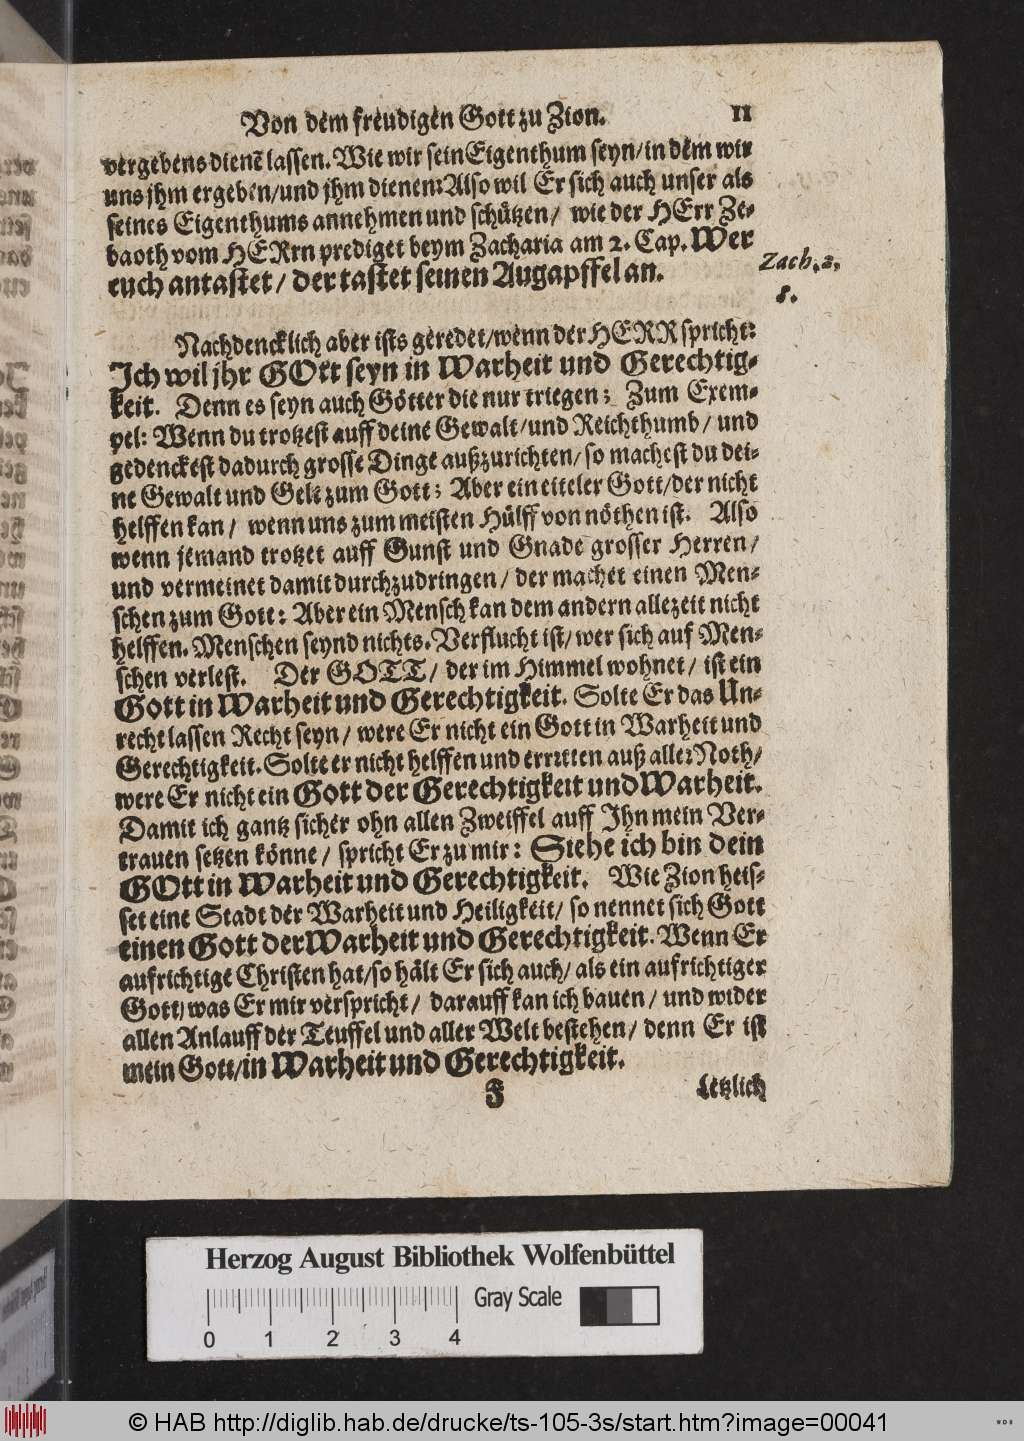 Von dem freudigen Gott zu Zion. 11
vergebens dienẽ lassen. Wie wir sein Eigenthum seyn/ in dem wir
uns jhm ergeben/ und jhm dienen: Also wil Er sich auch unser als
seines Eigenthums annehmen und schützen/ wie der HErr Ze-
baoth vom HERrn prediget beym Zacharia am 2. Cap. Wer
euch antastet/ der tastet seinen Augapffel an.
Zach. 2,
8.
Nachdencklich aber ists geredet/ wenn der HERR spricht:
Ich wil jhr GOtt seyn in Warheit und Gerechtig-
keit. Denn es seyn auch Götter die nur triegen; Zum Exem-
pel: Wenn du trotzest auff deine Gewalt/ und Reichthumb/ und
gedenckest dadurch grosse Dinge außzurichten/ so machest du dei-
ne Gewalt und Gelt zum Gott; Aber ein eiteler Gott/ der nicht
helffen kan/ wenn uns zum meisten Hülff von nöthen ist. Also
wenn jemand trotzet auff Gunst und Gnade grosser Herren/
und vermeinet damit durchzudringen/ der machet einen Men-
schen zum Gott: Aber ein Mensch kan dem andern allezeit nicht
helffen. Menschen seynd nichts. Verflucht ist/ wer sich auf Men-
schen verlest. Der GOTT/ der im Himmel wohnet/ ist ein
Gott in Warheit und Gerechtigkeit. Solte Er das Un-
recht lassen Recht seyn/ were Er nicht ein Gott in Warheit und
Gerechtigkeit. Solte er nicht helffen und erretten auß aller Noth/
were Er nicht ein Gott der Gerechtigkeit und Warheit.
Damit ich gantz sicher ohn allen Zweiffel auff Ihn mein Ver-
trauen setzen könne/ spricht Er zu mir: Siehe ich bin dein
GOtt in Warheit und Gerechtigkeit. Wie Zion heis-
set eine Stadt der Warheit und Heiligkeit/ so nennet sich Gott
einen Gott der Warheit und Gerechtigkeit. Wenn Er
aufrichtige Christen hat/ so hält Er sich auch/ als ein aufrichtiger
Gott/ was Er mir verspricht/ darauff kan ich bauen/ und wider
allen Anlauff der Teuffel und aller Welt bestehen/ denn Er ist
mein Gott/ in Warheit und Gerechtigkeit.
F letzlich
Herzog August Bibliothek Wolfenbüttel
Gray Scale
0 1 2 3 4
© HAB http://diglib.hab.de/drucke/ts-105-3s/start.htm?image=00041